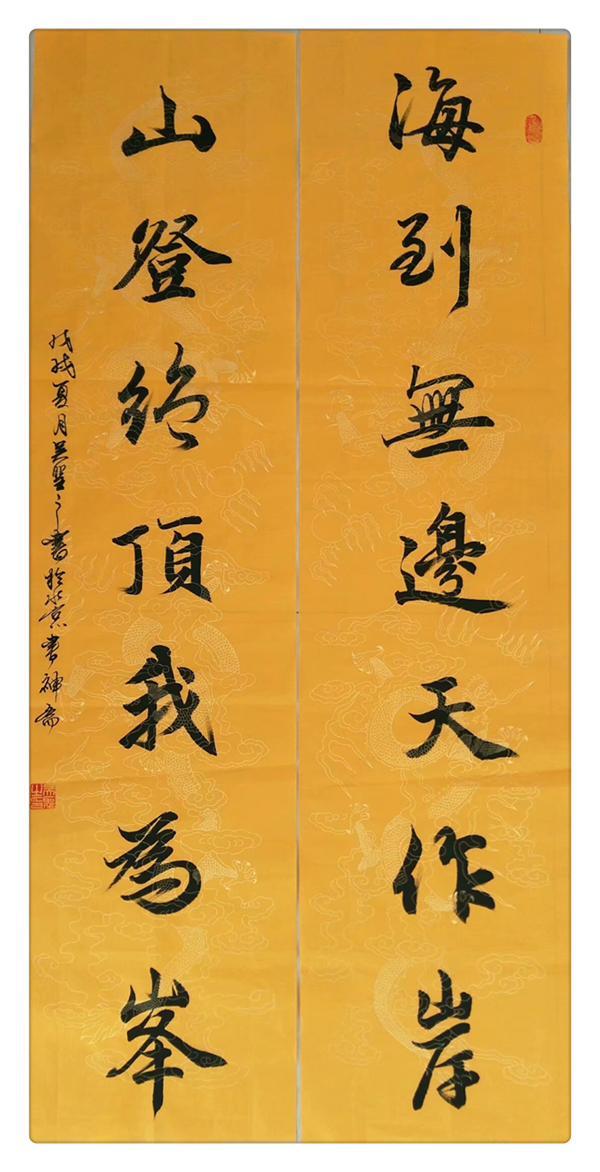 海到無邊天作岸
山登絶頂我為峯
戊戌夏月吳聖之書於北京書神齋